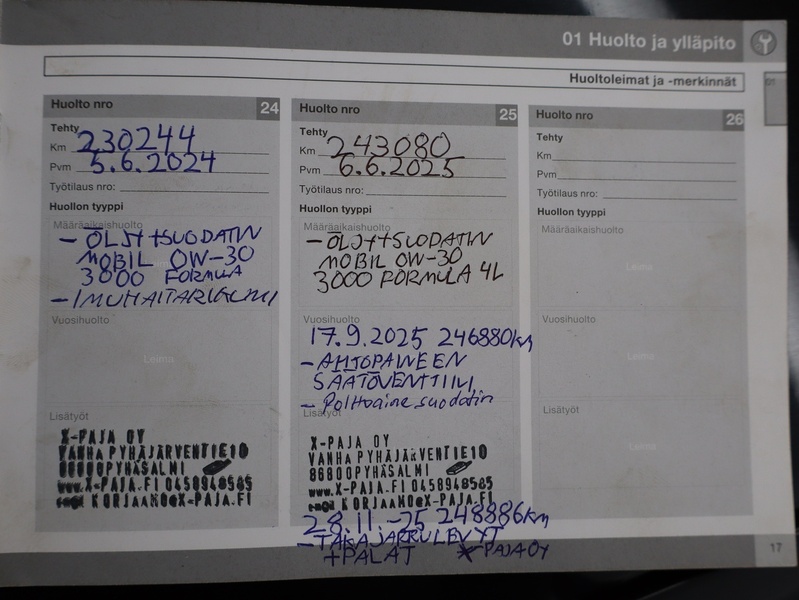 01 Huolto ja ylläpito
Huoltoleimat ja -merkinnät
01
Huolto nro 24
Tehty
Km 230244
Pvm 5.6.2024
Työtilaus nro:
Huollon tyyppi
Määräaikaishuolto
- ÖLJY+SUODATIN
MOBIL 0W-30
3000 FORMULA
- IMUHAITARIKUMI
Leima
Vuosihuolto
Leima
Lisätyöt
X-PAJA OY
VANHA PYHÄJÄRVENTIE10
86800PYHÄSALMI
www.X-PAJA.FI 0458948585
e-mail KORJAAMO@X-PAJA.FI
Huolto nro 25
Tehty
Km 243080
Pvm 6.6.2025
Työtilaus nro:
Huollon tyyppi
Määräaikaishuolto
- ÖLJY+SUODATIN
MOBIL 0W-30
3000 FORMULA 4L
Vuosihuolto
17.9.2025 246880km
- AHTOPAINEEN
SÄÄTÖVENTTIILI
- Polttoaine suodatin
Lisätyöt
X-PAJA OY
VANHA PYHÄJÄRVENTIE10
86800PYHÄSALMI
www.X-PAJA.FI 0458948585
e-mail KORJAAMO@X-PAJA.FI
28.11.-25 248886km
- TAKAJARRULEVYT
+PALAT X-PAJA OY
Huolto nro 26
Tehty
Km
Pvm
Työtilaus nro:
Huollon tyyppi
Määräaikaishuolto
Leima
Vuosihuolto
Leima
Lisätyöt
Leima
17